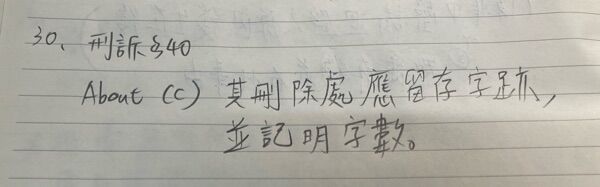 30、刑訴§40
About (c) 其刪除處應留存字跡,
並記明字數。